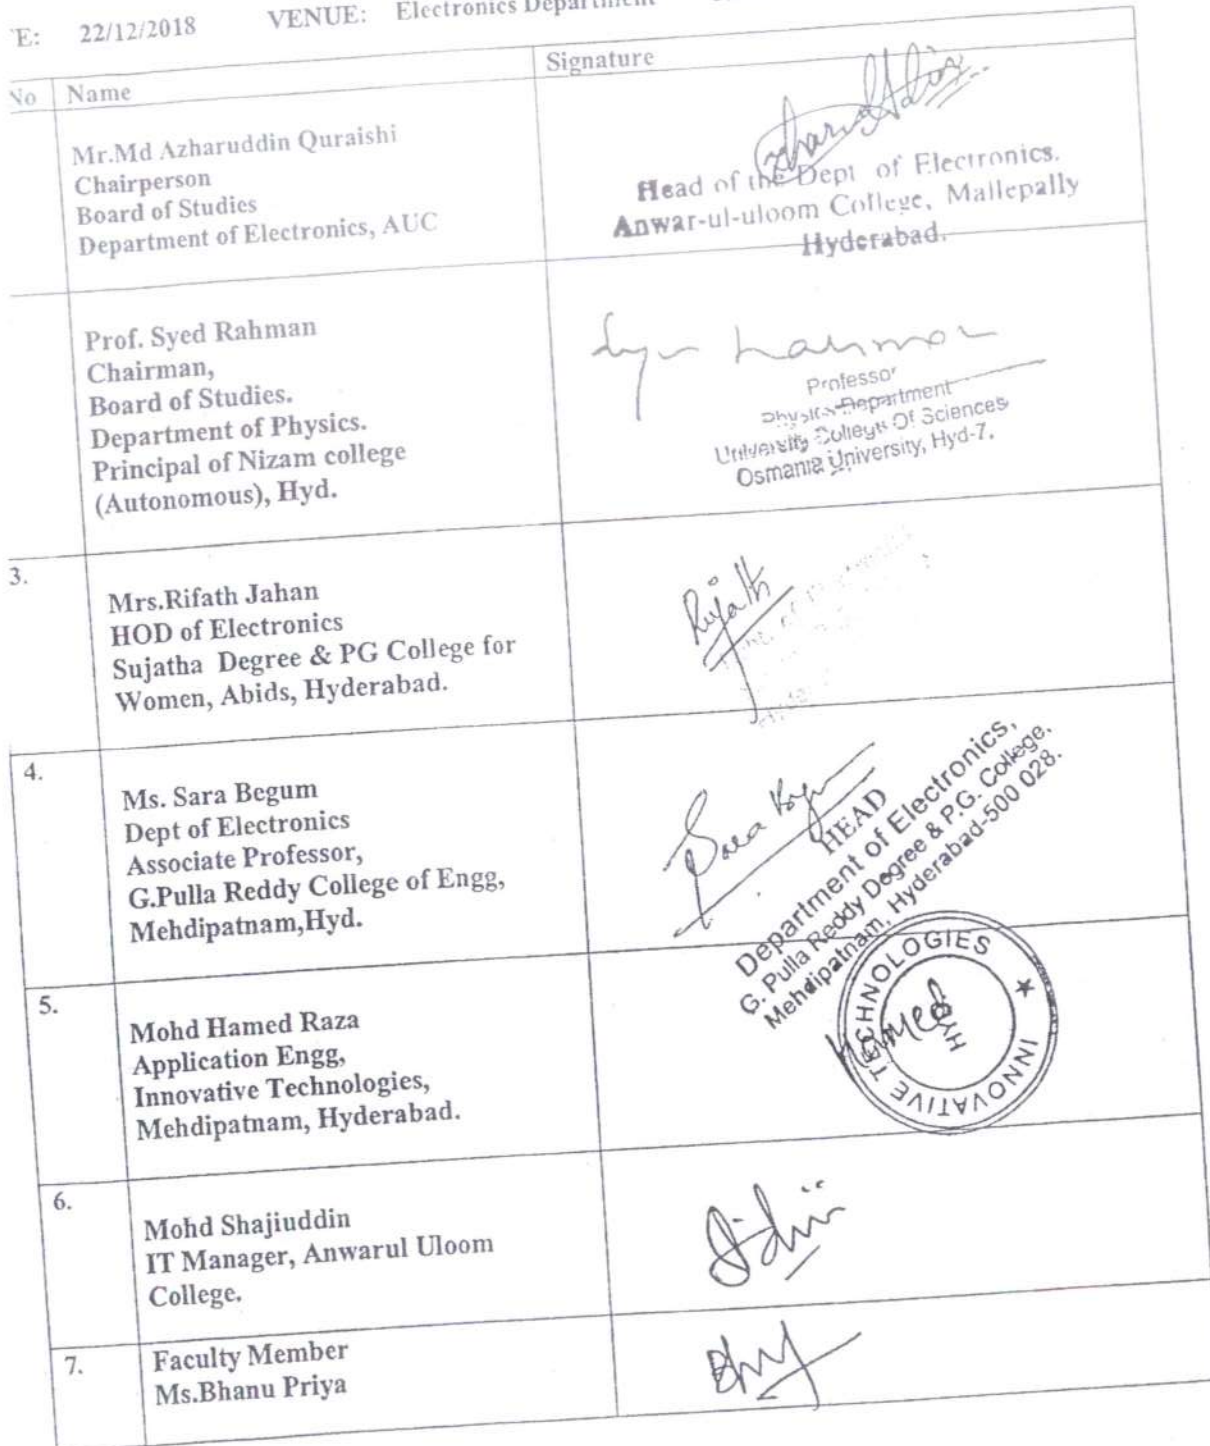 'E: 22/12/2018 VENUE: Electronics Department
No Name Signature
Mr.Md Azharuddin Quraishi
Chairperson
Board of Studies
Department of Electronics, AUC
Head of the Dept of Electronics.
Anwar-ul-uloom College, Mallepally
Hyderabad.
Prof. Syed Rahman
Chairman,
Board of Studies.
Department of Physics.
Principal of Nizam college
(Autonomous), Hyd.
Professor
Physics Department
University College Of Sciences
Osmania University, Hyd-7.
3.
Mrs.Rifath Jahan
HOD of Electronics
Sujatha Degree & PG College for
Women, Abids, Hyderabad.
Rifath
4.
Ms. Sara Begum
Dept of Electronics
Associate Professor,
G.Pulla Reddy College of Engg,
Mehdipatnam,Hyd.
HEAD
Department of Electronics,
G. Pulla Reddy Degree & P.G. College,
Mehdipatnam, Hyderabad-500 028.
5.
Mohd Hamed Raza
Application Engg,
Innovative Technologies,
Mehdipatnam, Hyderabad.
INNOVATIVE TECHNOLOGIES ★
HYD
Hamed
6.
Mohd Shajiuddin
IT Manager, Anwarul Uloom
College.
7.
Faculty Member
Ms.Bhanu Priya